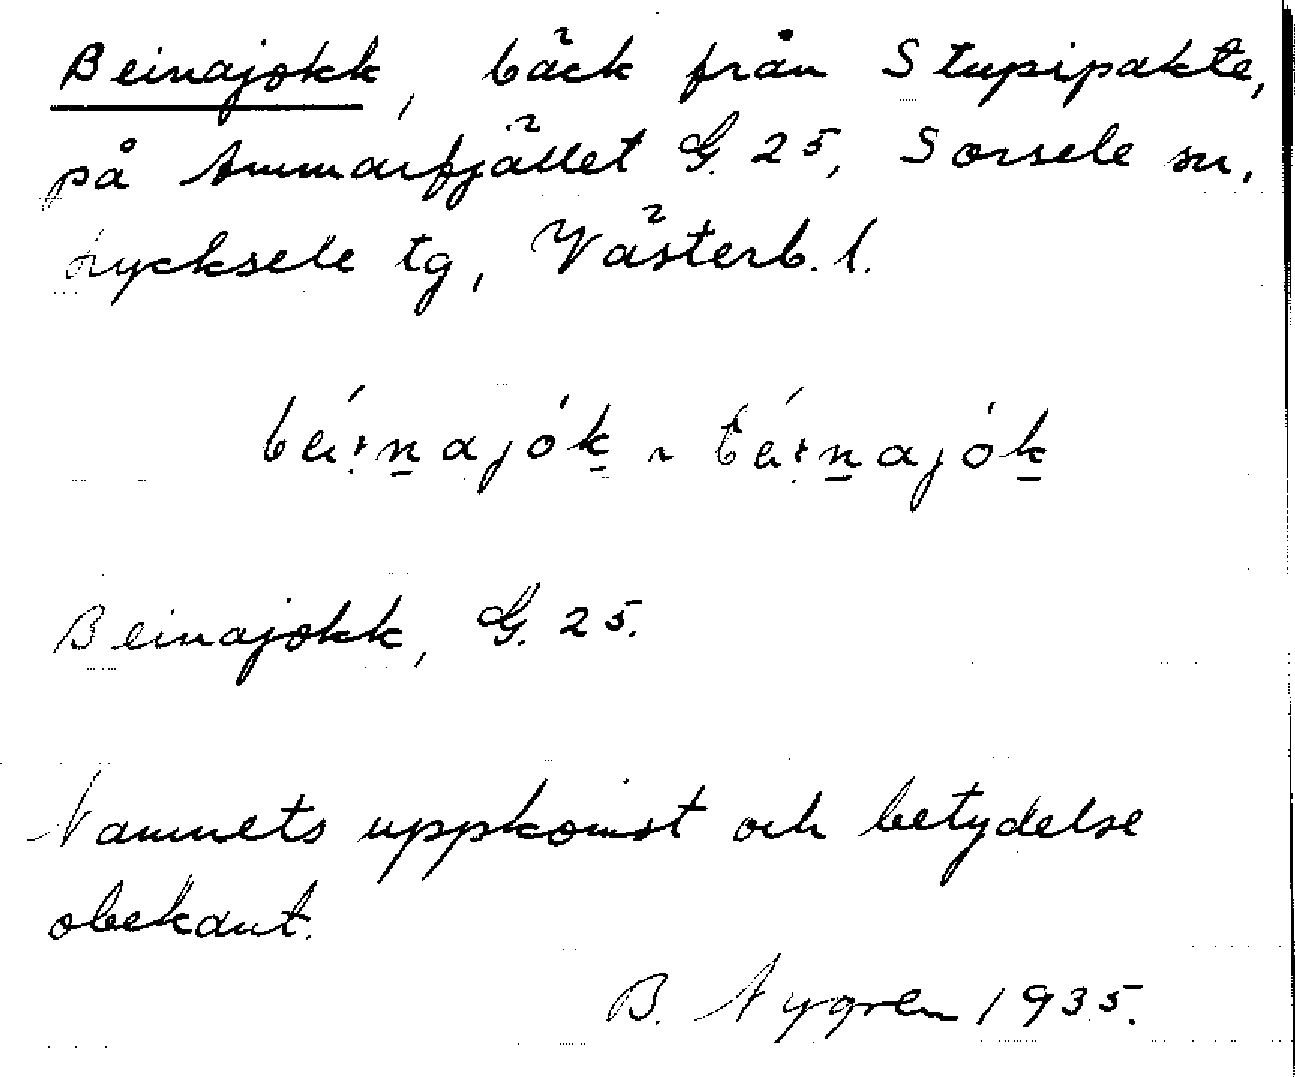 Beinajokk, bäck från Stupipakte,
på Ammarfjället G. 25, Sorsele sn,
Lycksele tg, Västerb. l.
Beinajokk, G. 25.
Namnets uppkomst och betydelse
obekant.
B. Nygren 1935.